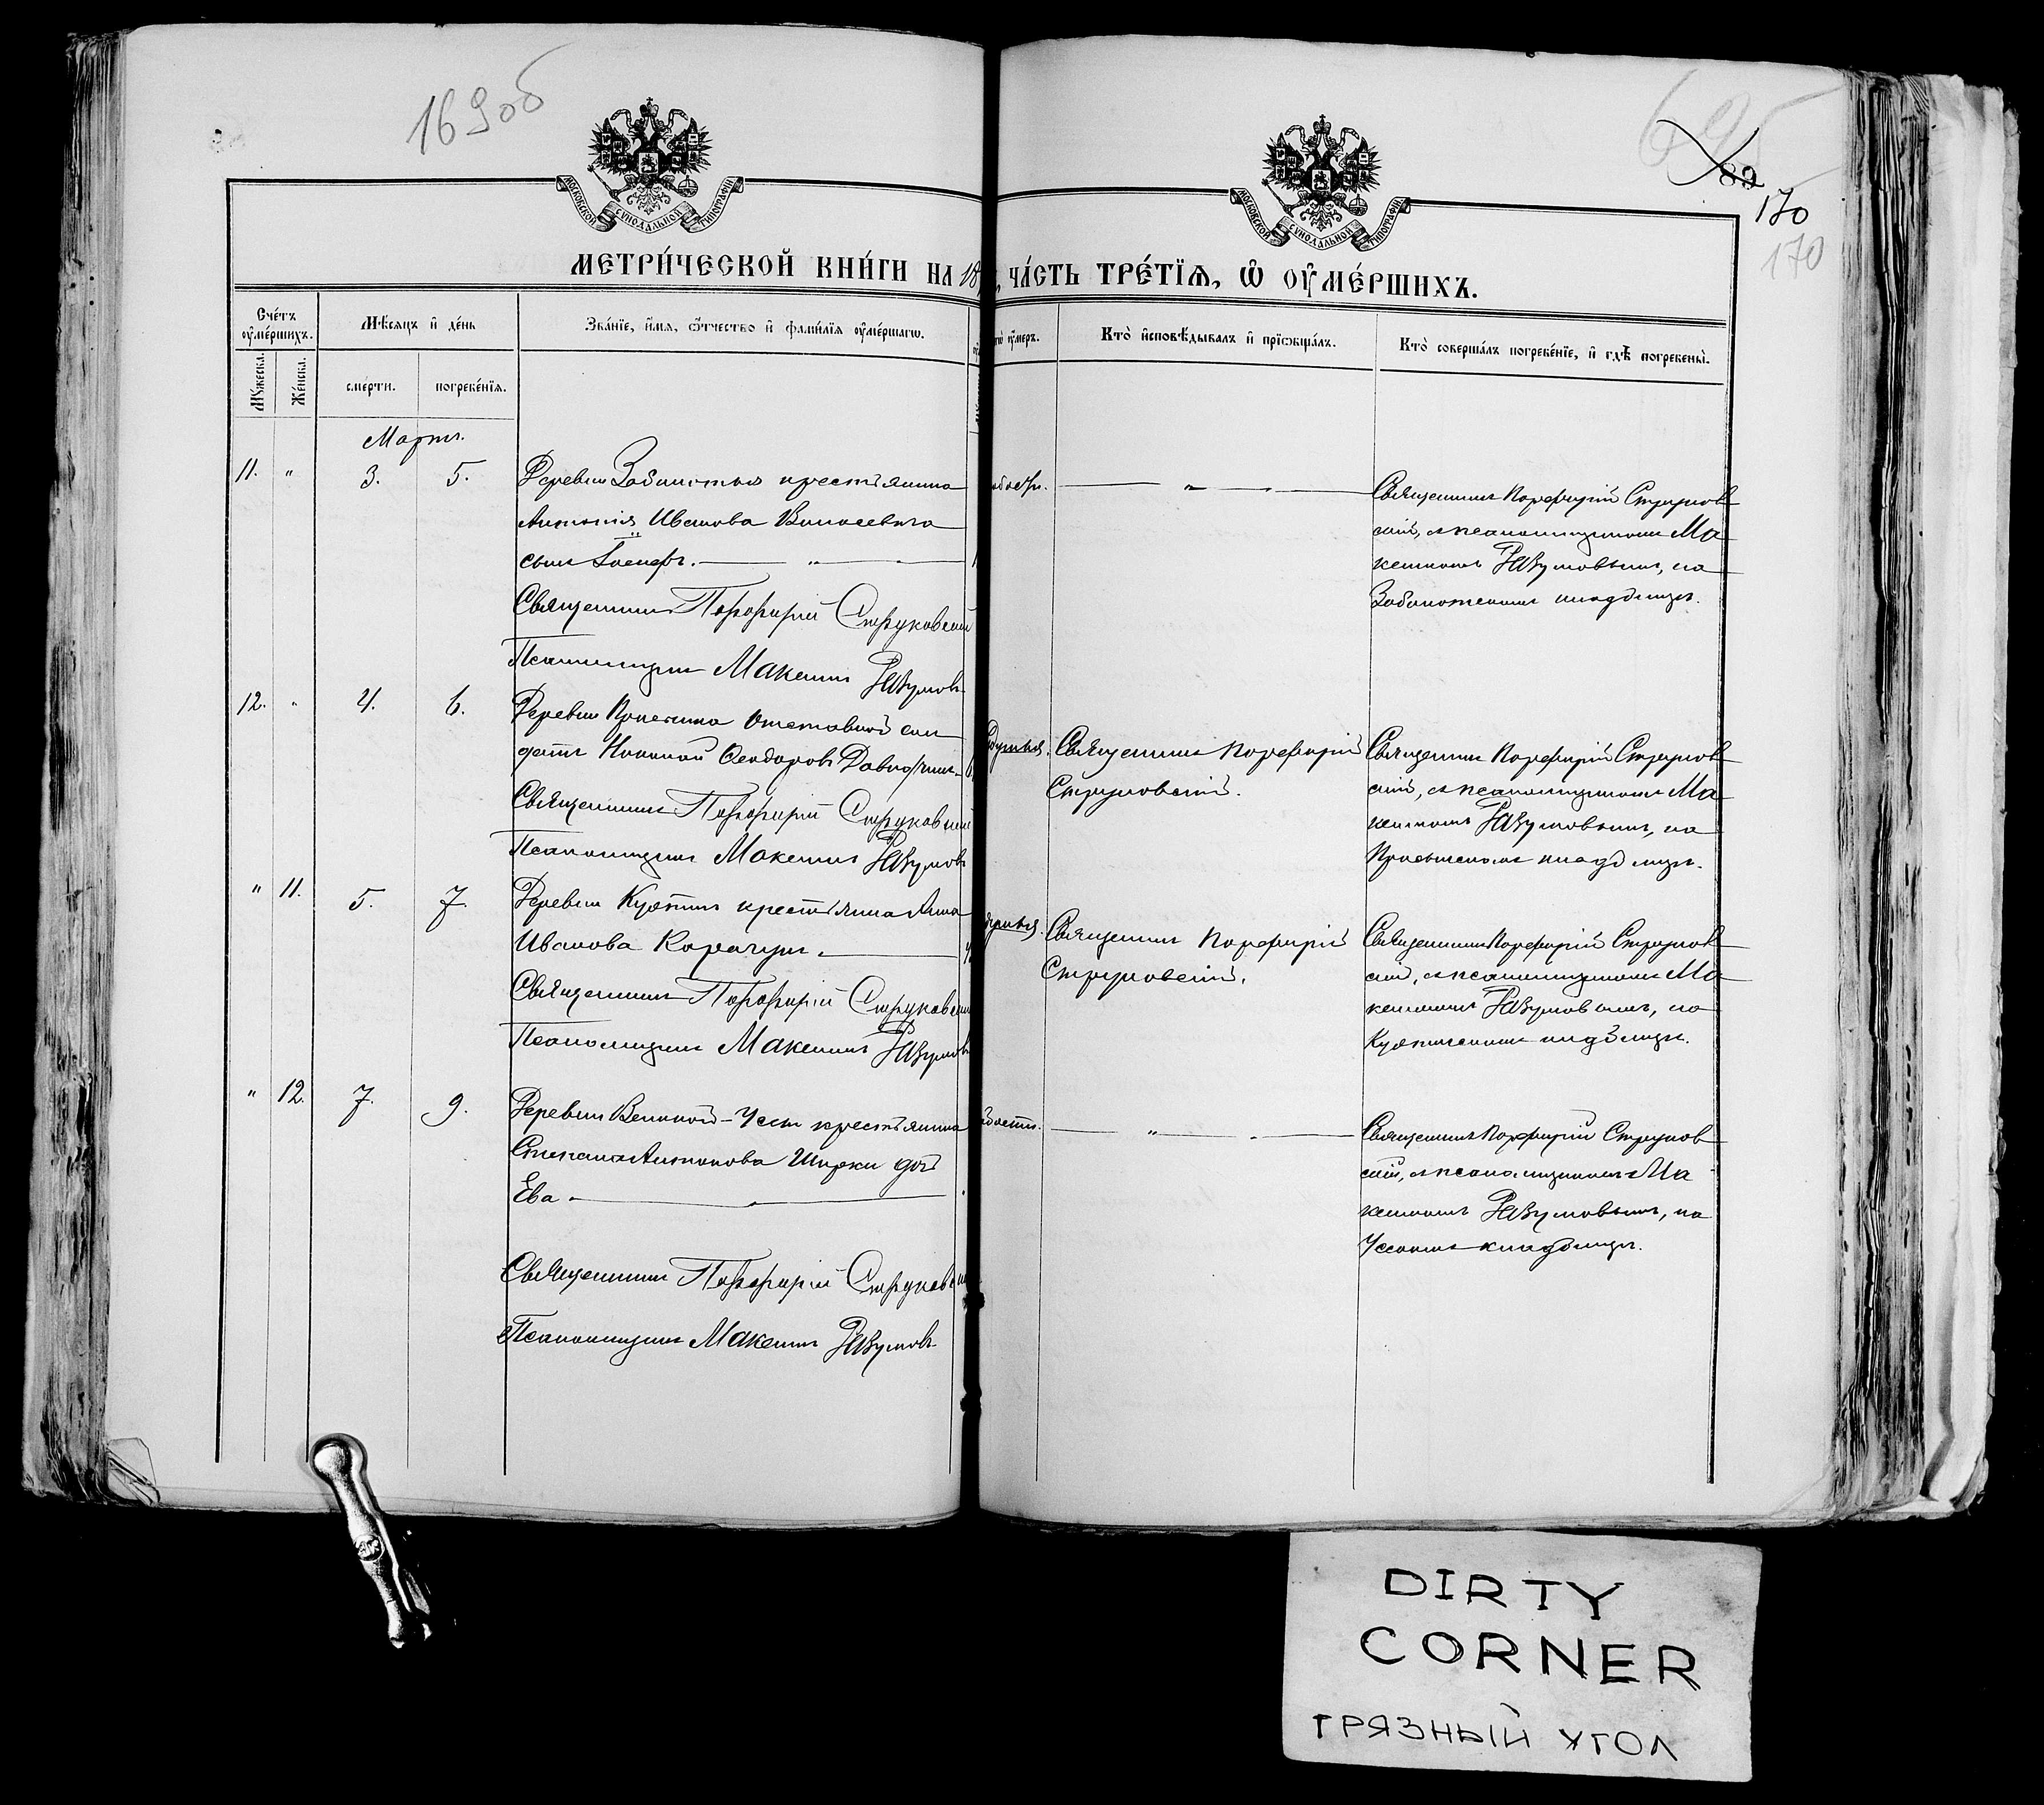 169об
89
170
170
МОСКОВСКОЙ СУНОДАЛЬНОЙ ТИПОГРАФІИ
МОСКОВСКОЙ СУНОДАЛЬНОЙ ТИПОГРАФІИ
МЕТРИ́ЧЕСКОЙ КНИ́ГИ НА 18
, ЧА́СТЬ ТРЕ́ТІѦ, Ѿ ОУ҆МЕ́РШИХЪ.
Сче́тъ оу҆ме́ршихъ.
Мѣсяцъ и҆ де́нь
Зва́нїе, и҆́мя, ѻ҆́тчество и҆ фами́лїя оу҆ме́ршагѡ.
Кто̀ и҆сповѣ́дывалъ и҆ прїѡбща́лъ.
Кто̀ соверша́лъ погребе́нїе, и҆ гдѣ̀ погребены̀.
Мꙋ́жеска.
Же́нска.
сме́рти.
погребе́нїя.
Мартъ.
11. " 3. 5.
Деревни Заболотья крестьянина
Антонія Иванова
сынъ Іосифъ.
Священникъ Порфирій Струковскій
Псаломщикъ Максимъ Разумовъ
Священникъ Порфирій Струков
скій, съ псаломщикомъ Ма
ксимомъ Разумовымъ, на
кладбищѣ.
12. " 4. 6.
Деревни отставной сол
датъ Николай Ѳеодоровъ
Священникъ Порфирій Струковскій
Псаломщикъ Максимъ Разумовъ
Священникъ Порфирій
Струковскій.
Священникъ Порфирій Струков
скій, съ псаломщикомъ Ма
ксимомъ Разумовымъ, на
кладбищѣ.
" 11. 5. 7.
Деревни крестьянина
Иванова
Священникъ Порфирій Струковскій
Псаломщикъ Максимъ Разумовъ
Священникъ Порфирій
Струковскій.
Священникъ Порфирій Струков
скій, съ псаломщикомъ Ма
ксимомъ Разумовымъ, на
кладбищѣ.
" 12. 7. 9.
Деревни Великой-Уссы крестьянина
Степана Антонова Ширки дочь
Ева
Священникъ Порфирій Струковскій
Псаломщикъ Максимъ Разумовъ
Священникъ Порфирій Струков
скій, съ псаломщикомъ Ма
ксимомъ Разумовымъ, на
Усскомъ кладбищѣ.
DIRTY
CORNER
ГРЯЗНЫЙ УГОЛ